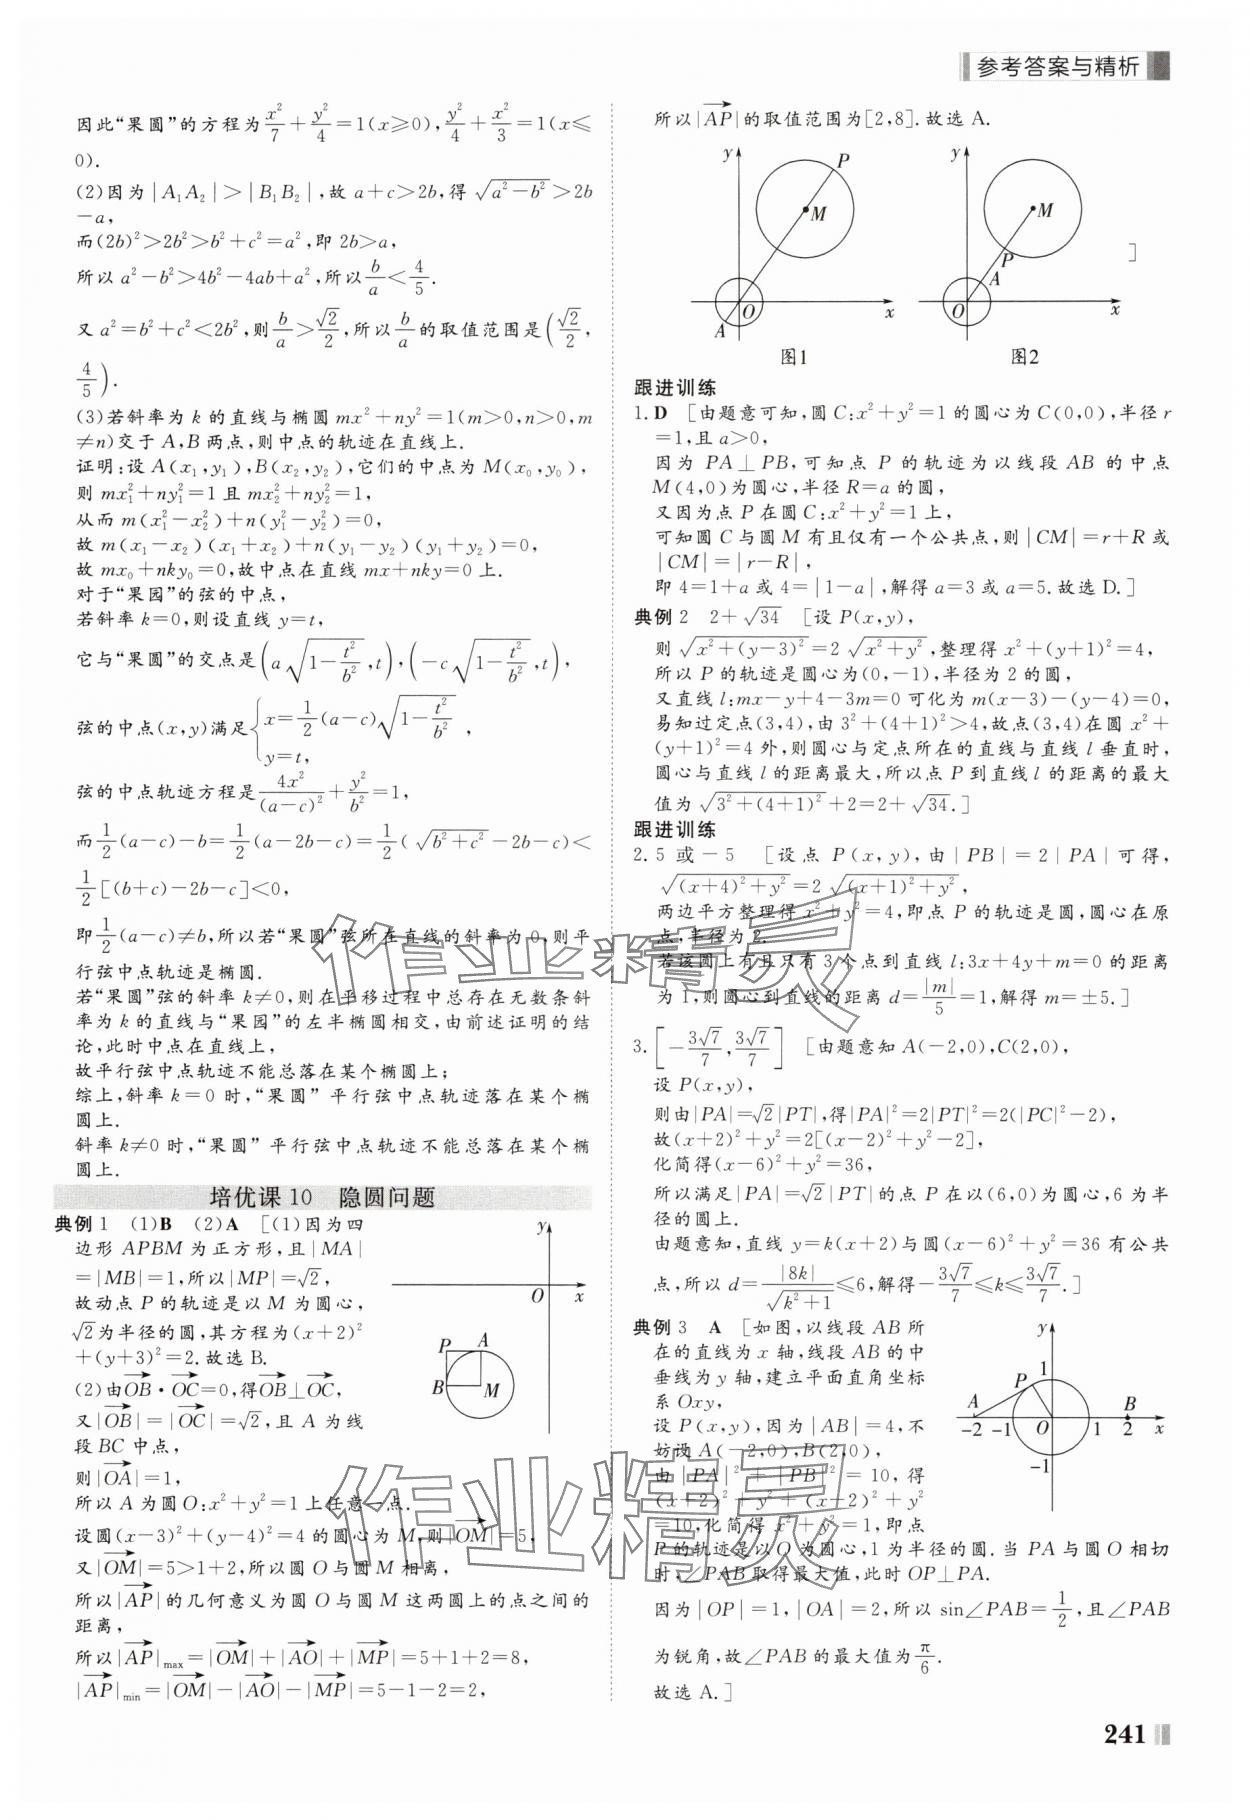 参考答案与精析
因此“果圆”的方程为x²/7+y²/4=1(x≥0),y²/4+x²/3=1(x≤
0).
(2)因为|A₁A₂|>|B₁B₂|,故a+c>2b,得√(a²-b²)>2b
-a,
而(2b)²>2b²>b²+c²=a²,即2b>a,
所以a²-b²>4b²-4ab+a²,所以b/a<4/5.
又a²=b²+c²<2b²,则b/a>√2/2,所以b/a的取值范围是(√2/2,
4/5).
(3)若斜率为k的直线与椭圆mx²+ny²=1(m>0,n>0,m
≠n)交于A,B两点,则中点的轨迹在直线上.
证明:设A(x₁,y₁),B(x₂,y₂),它们的中点为M(x₀,y₀),
则mx₁²+ny₁²=1且mx₂²+ny₂²=1,
从而m(x₁²-x₂²)+n(y₁²-y₂²)=0,
故m(x₁-x₂)(x₁+x₂)+n(y₁-y₂)(y₁+y₂)=0,
故mx₀+nky₀=0,故中点在直线mx+nky=0上.
对于“果园”的弦的中点,
若斜率k=0,则设直线y=t,
它与“果圆”的交点是(a√(1-t²/b²),t),(-c√(1-t²/b²),t),
弦的中点(x,y)满足{x=1/2(a-c)√(1-t²/b²),
y=t,
弦的中点轨迹方程是4x²/(a-c)²+y²/b²=1,
而1/2(a-c)-b=1/2(a-2b-c)=1/2(√(b²+c²)-2b-c)<
1/2[(b+c)-2b-c]<0,
即1/2(a-c)≠b,所以若“果圆”弦所在直线的斜率为0,则平
行弦中点轨迹是椭圆.
若“果圆”弦的斜率k≠0,则在平移过程中总存在无数条斜
率为k的直线与“果园”的左半椭圆相交,由前述证明的结
论,此时中点在直线上,
故平行弦中点轨迹不能总落在某个椭圆上;
综上,斜率k=0时,“果圆”平行弦中点轨迹落在某个椭
圆上.
斜率k≠0时,“果圆”平行弦中点轨迹不能总落在某个椭
圆上.
培优课10 隐圆问题
典例1 (1)B (2)A [(1)因为四
边形APBM为正方形,且|MA|
=|MB|=1,所以|MP|=√2,
故动点P的轨迹是以M为圆心,
√2为半径的圆,其方程为(x+2)²
+(y+3)²=2.故选B.
(2)由OB→·OC→=0,得OB→⊥OC→,
又|OB→|=|OC→|=√2,且A为线
段BC中点,
则|OA→|=1,
所以A为圆O:x²+y²=1上任意一点.
设圆(x-3)²+(y-4)²=4的圆心为M,则|OM→|=5,
又|OM→|=5>1+2,所以圆O与圆M相离,
所以|AP→|的几何意义为圆O与圆M这两圆上的点之间的
距离,
所以|AP→|max=|OM→|+|AO→|+|MP→|=5+1+2=8,
|AP→|min=|OM→|-|AO→|-|MP→|=5-1-2=2,
y
O x
P A
B M
所以|AP→|的取值范围为[2,8].故选A.
y P
M
O
A x
图1
y
M
P
A
O x
图2
]
跟进训练
1.D [由题意可知,圆C:x²+y²=1的圆心为C(0,0),半径r
=1,且a>0,
因为PA⊥PB,可知点P的轨迹为以线段AB的中点
M(4,0)为圆心,半径R=a的圆,
又因为点P在圆C:x²+y²=1上,
可知圆C与圆M有且仅有一个公共点,则|CM|=r+R或
|CM|=|r-R|,
即4=1+a或4=|1-a|,解得a=3或a=5.故选D.]
典例2 2+√34 [设P(x,y),
则√(x²+(y-3)²)=2√(x²+y²),整理得x²+(y+1)²=4,
所以P的轨迹是圆心为(0,-1),半径为2的圆,
又直线l:mx-y+4-3m=0可化为m(x-3)-(y-4)=0,
易知过定点(3,4),由3²+(4+1)²>4,故点(3,4)在圆x²+
(y+1)²=4外,则圆心与定点所在的直线与直线l垂直时,
圆心与直线l的距离最大,所以点P到直线l的距离的最大
值为√(3²+(4+1)²)+2=2+√34.]
跟进训练
2.5或-5 [设点P(x,y),由|PB|=2|PA|可得,
√((x+4)²+y²)=2√((x+1)²+y²),
两边平方整理得x²+y²=4,即点P的轨迹是圆,圆心在原
点,半径为2.
若该圆上有且只有3个点到直线l:3x+4y+m=0的距离
为1,则圆心到直线的距离d=|m|/5=1,解得m=±5.]
3.[-3√7/7,3√7/7] [由题意知A(-2,0),C(2,0),
设P(x,y),
则由|PA|=√2|PT|,得|PA|²=2|PT|²=2(|PC|²-2),
故(x+2)²+y²=2[(x-2)²+y²-2],
化简得(x-6)²+y²=36,
所以满足|PA|=√2|PT|的点P在以(6,0)为圆心,6为半
径的圆上.
由题意知,直线y=k(x+2)与圆(x-6)²+y²=36有公共
点,所以d=|8k|/√(k²+1)≤6,解得-3√7/7≤k≤3√7/7.]
典例3 A [如图,以线段AB所
在的直线为x轴,线段AB的中
垂线为y轴,建立平面直角坐标
系Oxy,
设P(x,y),因为|AB|=4,不
妨设A(-2,0),B(2,0),
由|PA|²+|PB|²=10,得
(x+2)²+y²+(x-2)²+y²
=10,化简得x²+y²=1,即点
P的轨迹是以O为圆心,1为半径的圆.当PA与圆O相切
时,∠PAB取得最大值,此时OP⊥PA.
因为|OP|=1,|OA|=2,所以sin∠PAB=1/2,且∠PAB
为锐角,故∠PAB的最大值为π/6.
故选A.]
y
P 1
A B
-2 -1 O 1 2 x
-1
作业精灵
作业精灵
241